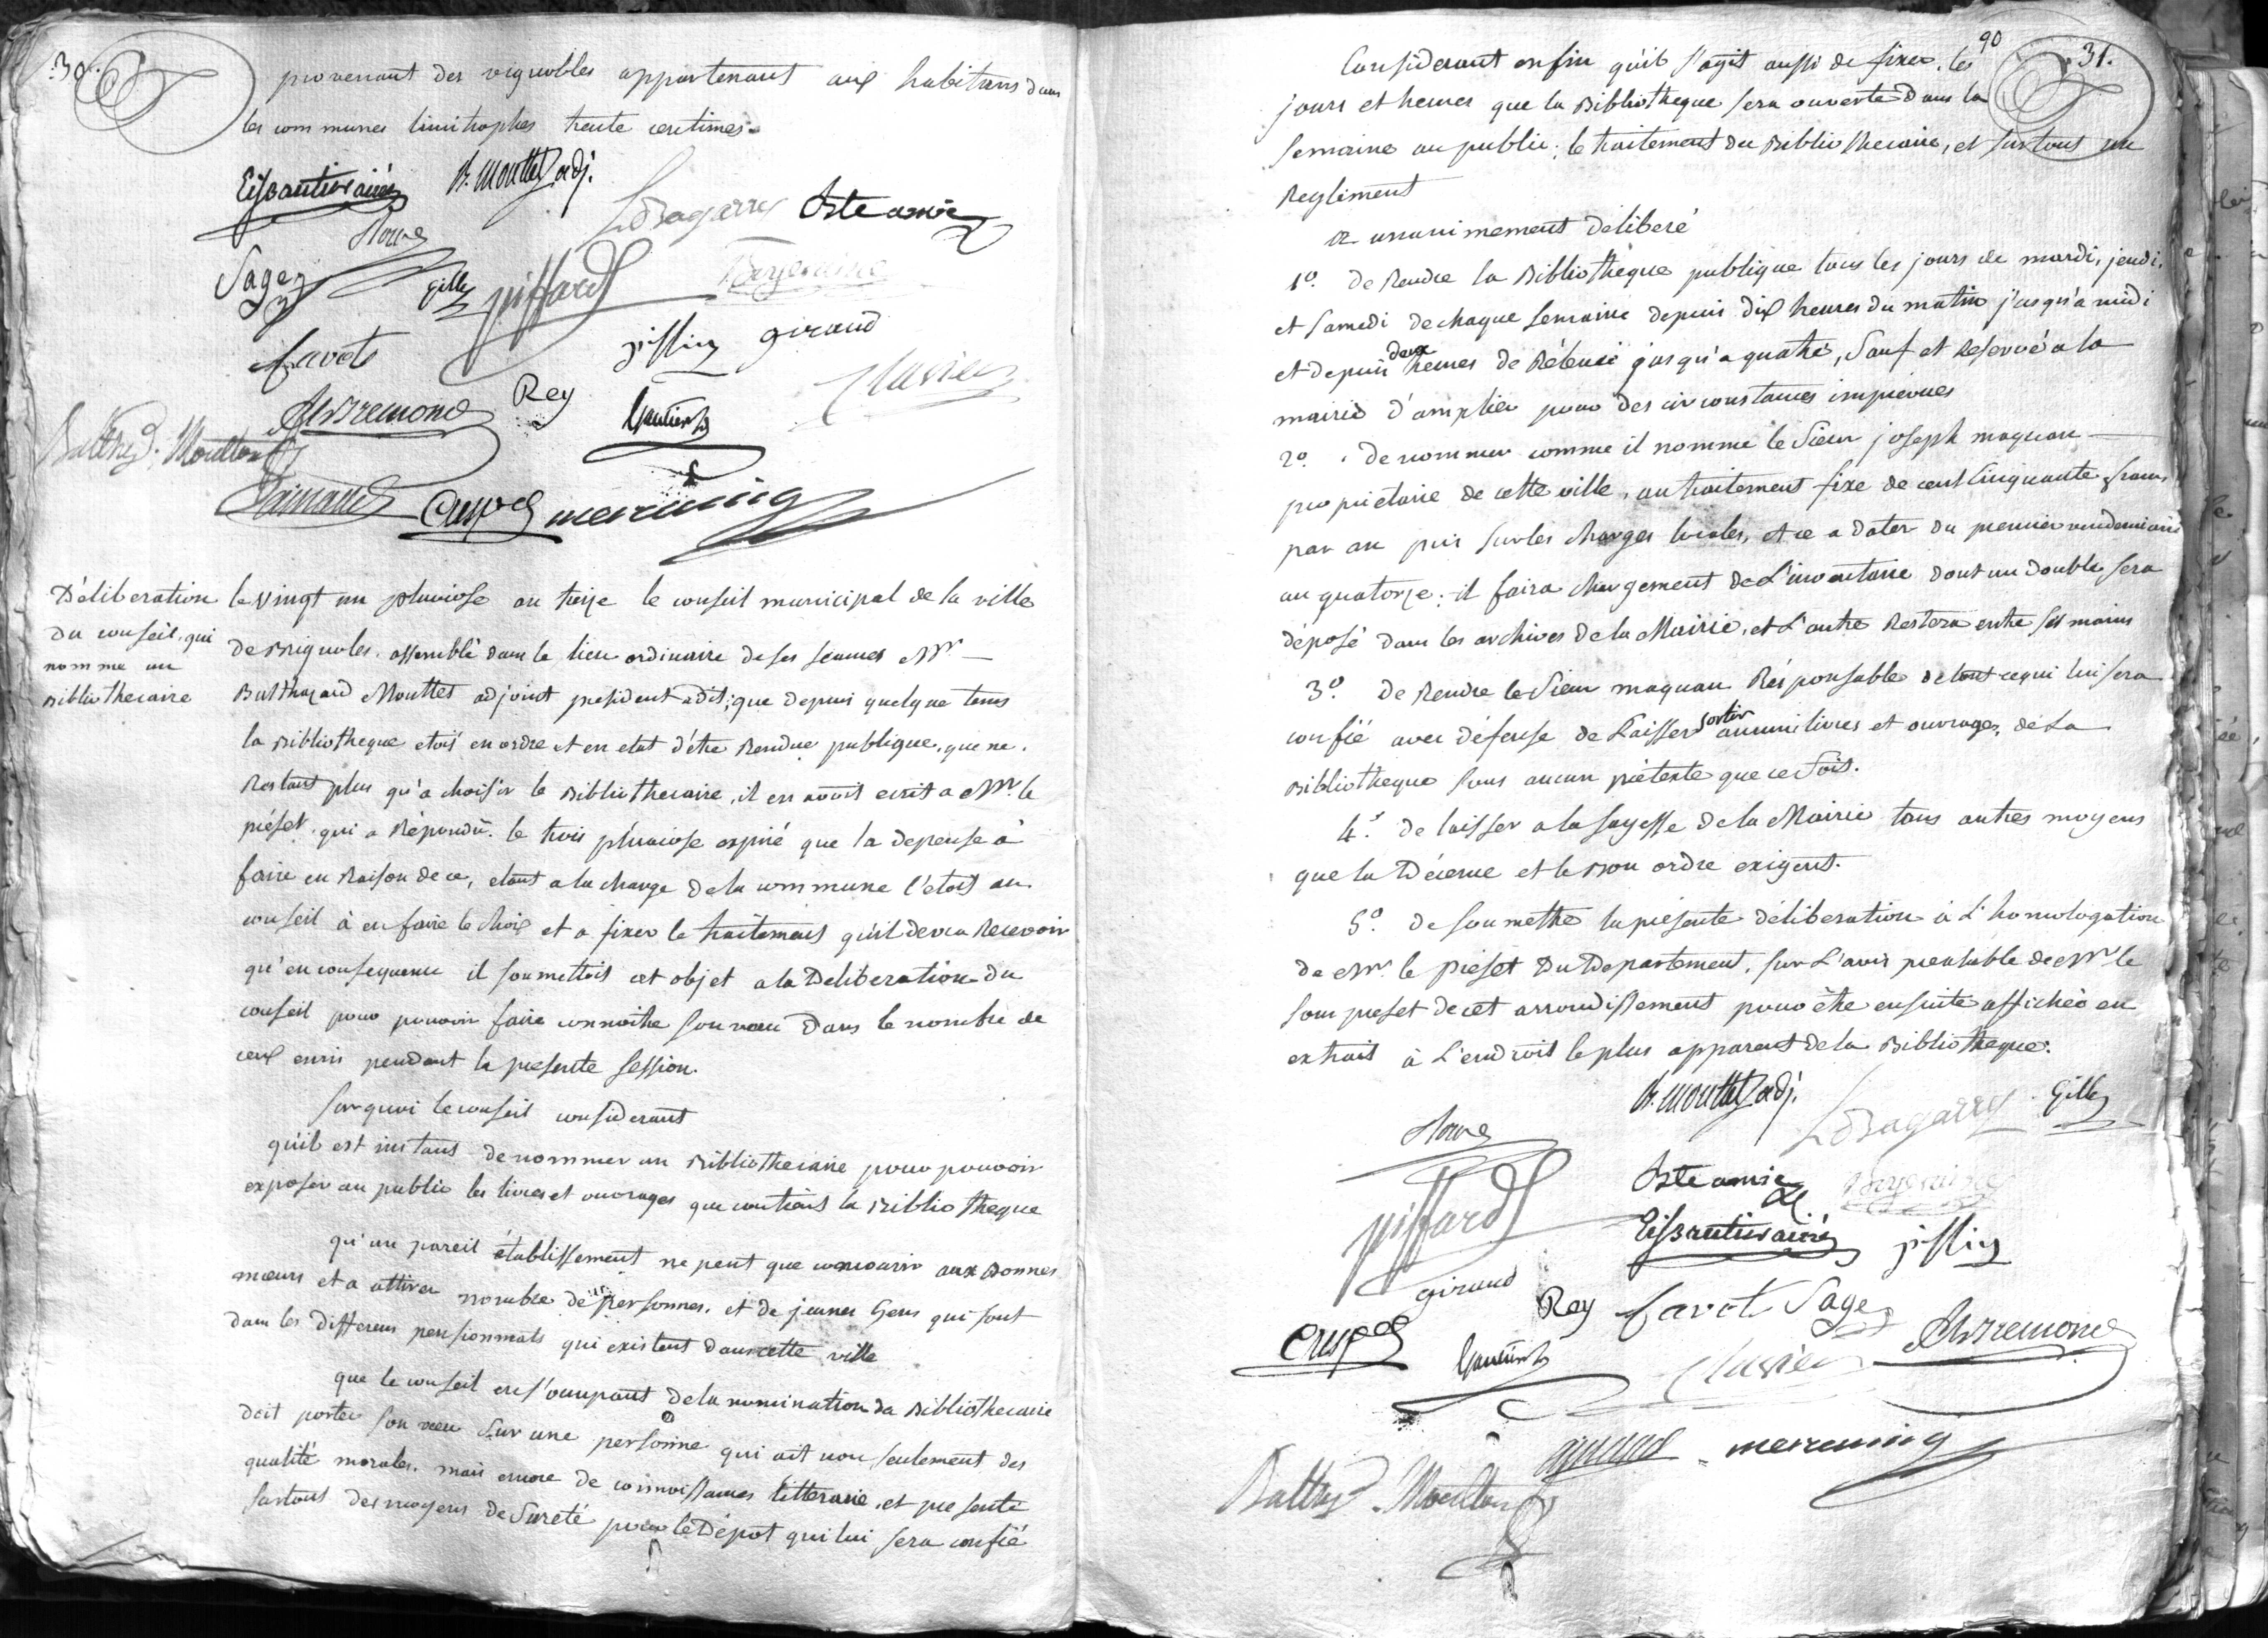 30.
provenant des vignobles appartenant aux habitans dans
les communes limitrophes trente centimes
Eissautier ainé
B. Mouttet adj.
Sagey
Gilly
piffard
favot
jissin
giraud
Rey
Gautier
Clavier
Bremond
Balthd. Moutton
Raynaud
Crespol
Délibération
du conseil, qui
nomme un
Bibliothecaire
le vingt un pluviose an treize le conseil municipal de la ville
de Brignoles, assemblé dans le lieu ordinaire de ses seances Mr.
Balthazard Mouttet adjoint president a dit; que depuis quelque tems
la Bibliotheque etoit en ordre et en etat d'être Rendue publique, que ne
Restant plus qu'a choisir le Bibliothecaire, il en avoit ecrit a Mr. le
préfet, qui a Répondu le trois pluviose expiré que la depense à
faire en Raison de ce, etant a la charge de la commune c'etoit au
conseil à en faire le choix et a fixer le traitement qu'il devra Recevoir
qu'en consequence il soumettoit cet objet a la Deliberation du
conseil pour pouvoir faire connoitre son vœu dans le nombre de
ceux emis pendant la presente session.
Sur quoi le conseil considerant
qu'il est instant de nommer un Bibliothecaire pour pouvoir
exposer au public les livres et ouvrages que contient la Bibliotheque
qu'un pareil établissement ne peut que concourir aux Bonnes
mœurs et a attirer nombre de Personnes, et de jeunes Gens qui sont
dans les differens pensionnats qui existent dans cette ville
que le conseil en s'occupant de la nomination du Bibliothecaire
doit porter son vœu sur une personne qui ait non seulement des
qualité morales, mais encore de connoissances litteraire, et presente
surtout des moyens de Sureté pour le Dépot qui lui sera confié
90
31.
Considerant enfin qu'il s'agit aussi de fixer, les
jours et heures que la Bibliotheque sera ouverte dans la
Semaine au public; le traitement du Bibliothecaire, et surtout un
Reglement
a unanimement deliberé
1º. de Rendre la Bibliothéque publique tous les jours de mardi, jeudi,
et Samedi de chaque semaine depuis dix heures du matin j'usqu'a midi
et depuis deux heures de Rélevée jusqu'a quatre, Sauf et Reservé a la
mairie d'amplier pour des circonstances imprevues
2º. de nommer comme il nomme le Sieur joseph maquan
proprietaire de cette ville, au traitement fixe de cent Cinquante francs
par an pris sur les charges locales, et ce a dater du premier vendemiaire
an quatorze; il faira chargement de L'inventaire dont un double sera
déposé dans les archives de la Mairie, et L'autre Restera entre ses mains
3º. de Rendre le Sieur maquan Résponsable de tout ce qui lui sera
confié avec défense de Laisser sortir aucuni livres et ouvrages, de La
Bibliotheque sous aucun prétexte que ce Soit.
4º. de laisser a la sagesse de la Mairie tous autres moyens
que la Décence et le Bon ordre exigent.
5º. de soumettre la présente déliberation à L'homologation
de Mr. le préfet du Departement, sur L'avis prealable de Mr. le
sous prefet de cet arrondissement pour être ensuite affichée en
extrait à L'endroit le plus apparent de la Bibliotheque.
B. Mouttet adj.
Gilly
piffard
Eissautier ainé
jissin
giraud
Rey
favot
Sagey
Crespol
Gautier
Clavier
Bremond
Balthd. Moutton